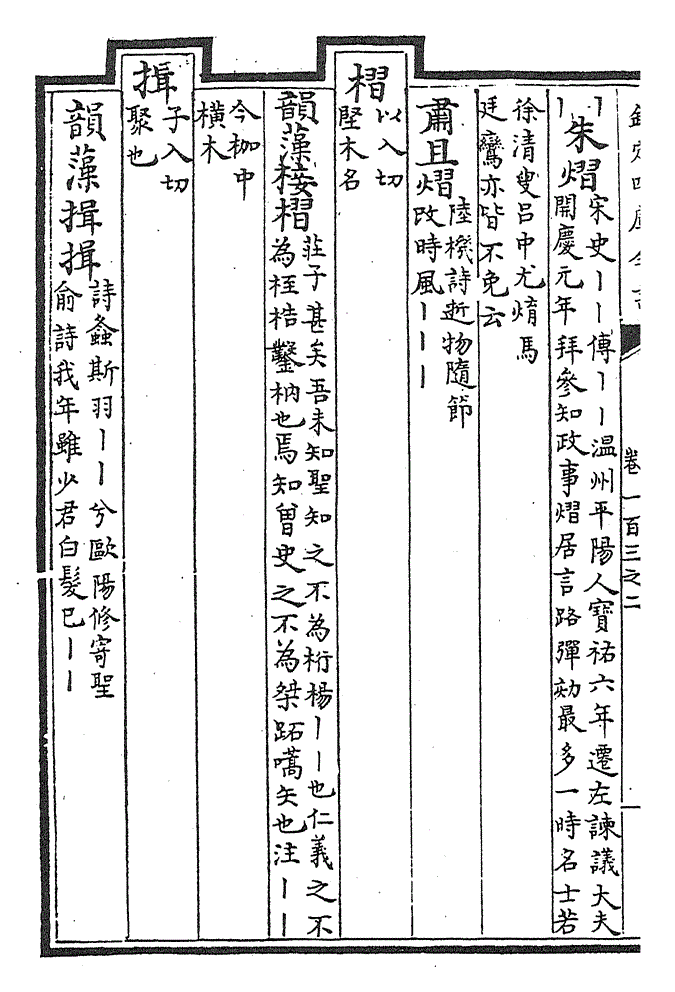 欽定四庫全書
卷一百三之二
丨
丨
朱熠
宋史丨丨傳丨丨温州平陽人寶祐六年遷左諫議大夫
開慶元年拜參知政事熠居言路彈劾最多一時名士若
徐清叟呂中尤焴馬
廷鸞亦皆不免云
肅且熠
陸機詩逝物隨節
改時風丨丨丨
槢
以入切
堅木名
韻藻椄槢
莊子甚矣吾未知聖知之不為桁楊丨丨也仁義之不
為桎梏鑿枘也焉知曾史之不為桀跖嚆矢也注丨丨
今枷中
橫木
揖
子入切
聚也
韻藻揖揖
詩螽斯羽丨丨兮歐陽修寄聖
俞詩我年雖少君白髮巳丨丨